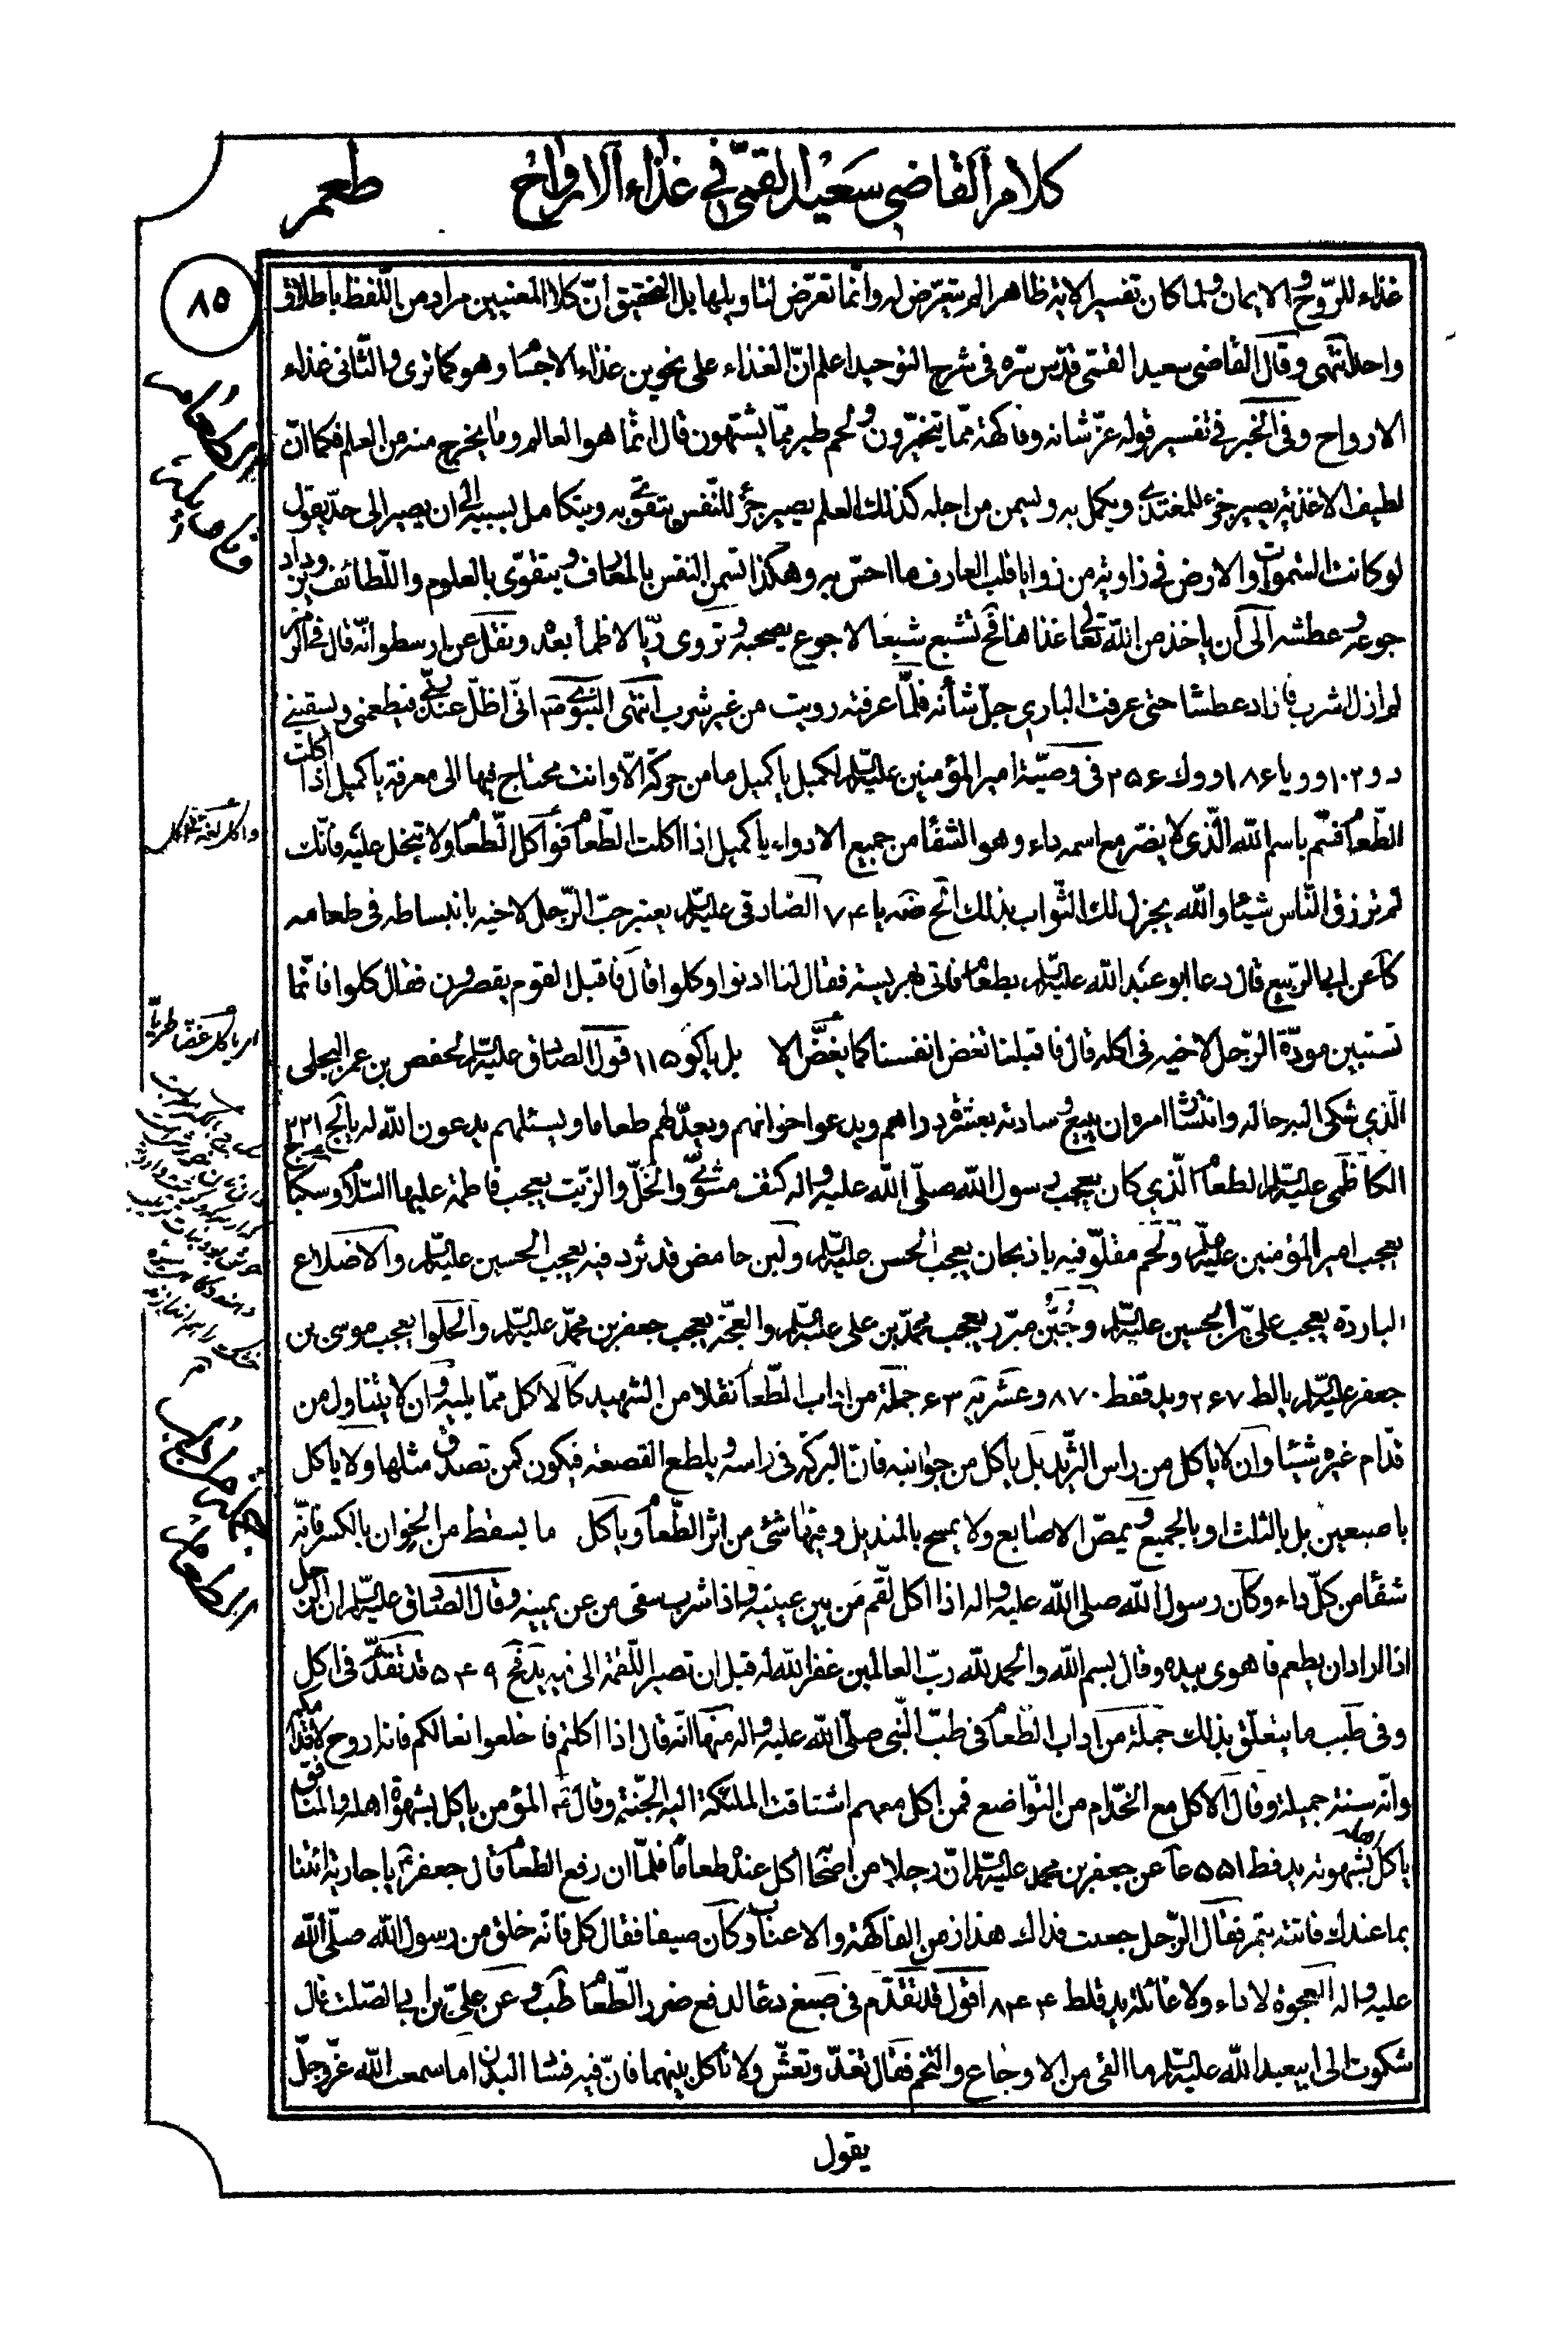 كلام القاضي سعيد القمّي في غذاء الارواح
طعم
٨٥
غذاء للرّوح و الايمان و لما كان تفسير الاية ظاهرا لم يتعرّض له و انّما تعرّض لتاويلها بل التحقيق انّ كلا المعنيين مراد من اللّفظ باطلاق
واحد انتهى و قال القاضى سعيد القمّى قدّس سرّه فى شرح التوحيد اعلم انّ الغذاء على نحوين غذاء الاجسا و هو كما ترى و الثّانى غذاء
الارواح و فى الخبر فى تفسير قوله عزّ شانه و فاكهة ممّا يتخيّرون و لحم طير ممّا يشتهون قال انّما هو العالم و ما يخرج منه من العلم فكما انّ
لطيف الاغذية يصير جزء للمغتذى و يكمل به و يسمن من اجله كذلك العلم يصير جزء للنّفس يتقوّى به و يتكامل بسببه الى ان يصير الى حدّ يقول
لو كانت السّموات و الارض فى زاوية من زوايا قلب العارف ما احسّ به و هكذا تسمن النفس بالمعارف و يتقوّى بالعلوم و اللّطائف و يزداد
جوعه و عطشه الى ان ياخذ من اللّه تعالى غذا هنا فح تشبع شبعا لا جوع يصحبه و تروى ريّا لا ظمأ بعده و نقل عن ارسطو انّه قال فى اخر
لم ازل اشرب فازداد عطشا حتى عرفت البارى جلّ شأنه فلمّا عرفته رويت من غير شرب انتهى النبوى ص انّى اظلّ عند ربّى فيطعمنى و يسقينى
د و ١٠٢ و و يا ١٨۶ و و ك ٢۵۶ فى وصيّة امير المؤمنين عليه السّلم لكميل يا كميل ما من حركة الّا و انت محتاج فيها الى معرفة يا كميل اذا اكلت
الطّعام فسمّ باسم اللّه الّذى لا يضرّ مع اسمه داء و هو الشّفا من جميع الادواء يا كميل اذا اكلت الطّعام فواكل الطّعام و لا تبخل عليه فانّك
لم ترزق النّاس شيئا و اللّه يجزل لك الثّواب بذلك الخ ضه يا ٧۴ الصّادق عليه السّلم يعتبر حبّ الرّجل لاخيه بانبساطه فى طعامه
كا عن ابى الرّبيع قال دعا ابو عبد اللّه عليه السّلم بطعام فاتى بهريسة فقال لنا ادنوا و كلوا قال فاقبل القوم يقصرون فقال كلوا فانّما
تستبين مودّة الرّجل لاخيه فى اكله قال فاقبلنا نغصّ انفسنا كما يغصّ الا بل يا كو ١١۵ قول الصّادق عليه السّلم لحفص بن عمر البجلى
الّذى شكى اليه حاله و انتشار امره ان يبيع و سادته بعشرة دراهم و يدعو اخوانهم و يعدّ لهم طعاما و يسئلهم يدعون اللّه له يا لج ٢٢١
الكاظمى عليه السّلم الطعام الّذى كان يعجب رسول اللّه صلّى اللّه عليه و اله كتف مشوىّ و الخلّ و الزيت يعجب فاطمة عليها السّلام و سكبا
يعجب امير المؤمنين عليه السّلم و لحم مقلوّ فيه باذنجان يعجب الحسن عليه السّلم و لبن حامض قد ثرد فيه يعجب الحسين عليه السّلم و الاضلاع
الباردة يعجب علىّ بن الحسين عليه السّلم و جُبُنّ مبرّر يعجب محمّد بن على عليه السّلم و العجّة يعجب جعفر بن محمّد عليه السّلم و الحلوا يعجب موسى بن
جعفر عليه السّلم يا لط ٢۶٧ و يد قفط ٨٧٠ و عشر يه ۶٣ جملة من اداب الطّعام نقلا من الشهيد كالاكل ممّا يليه و ان لا يتناول من
قدّام غيره شيئا و ان لا ياكل من راس الثّريد بل ياكل من جوانبه فانّ البركة فى راسه و يلطع القصعة فيكون كمن تصدّق مثلها و لا ياكل
باصبعين بل بالثلث او بالجميع و يمصّ الاصابع و لا يمسح بالمنديل و فيها شئ من اثر الطّعام و ياكل ما يسقط من الخِوان بالكسر فانّه
شفا من كلّ داء و كان رسول اللّه صلى اللّه عليه و اله اذا اكل لقّم من بين عينيه و اذا شرب سقى من عن يمينه و قال الصّادق عليه السّلم انّ الرّجل
اذا اراد ان يطعم فاهوى بيده و قال بسم اللّه و الحمد للّه ربّ العالمين غفر اللّه له قبل ان تصير اللّقمة الى فيه يد قح ۵۴٩ قد تقدّم فى اكل
و فى طبب ما يتعلّق بذلك جملة من اداب الطّعام فى طبّ النّبى صلّى اللّه عليه و اله منها انّه قال اذا اكلتم فاخلعوا نعالكم فانه اروح لاقدامكم
و انّه سنة جميلة و قال الاكل مع الخدّام من التّواضع فمن اكل معهم اشتاقت الملئكة اليه الجنّة و قال ص المؤمن ياكل بشهوة اهله و المنافق
ياكل اهله بشهوته يد فط ۵۵١ عا عن جعفر بن محمد عليه السّلم انّ رجلا من اصحابه اكل عنده طعاما فلمّا ان رفع الطعام قال جعفر يا جارية ائتنا
بما عندك فاتته بتمر فقال الرّجل جعلت فداك هذا زمن الفاكهة و الاعناب و كان صيفا فقال كل فانّه خلق من رسول اللّه صلّى اللّه
عليه و اله العجوة لا داء و لا غائلة يد قلط ٨۴۴ اقول قد تقدّم فى صبغ دعا لدفع ضرر الطّعام طب و عن علىّ بن ابى الصّلت قال
شكوت الى ابيعبد اللّه عليه السّلم ما القى من الاوجاع و التخم فقال تغدّ و تعشّ و لا تأكل بينهما فانّ فيه فسا البدن اما سمعت اللّه عزّ و جلّ
يقول